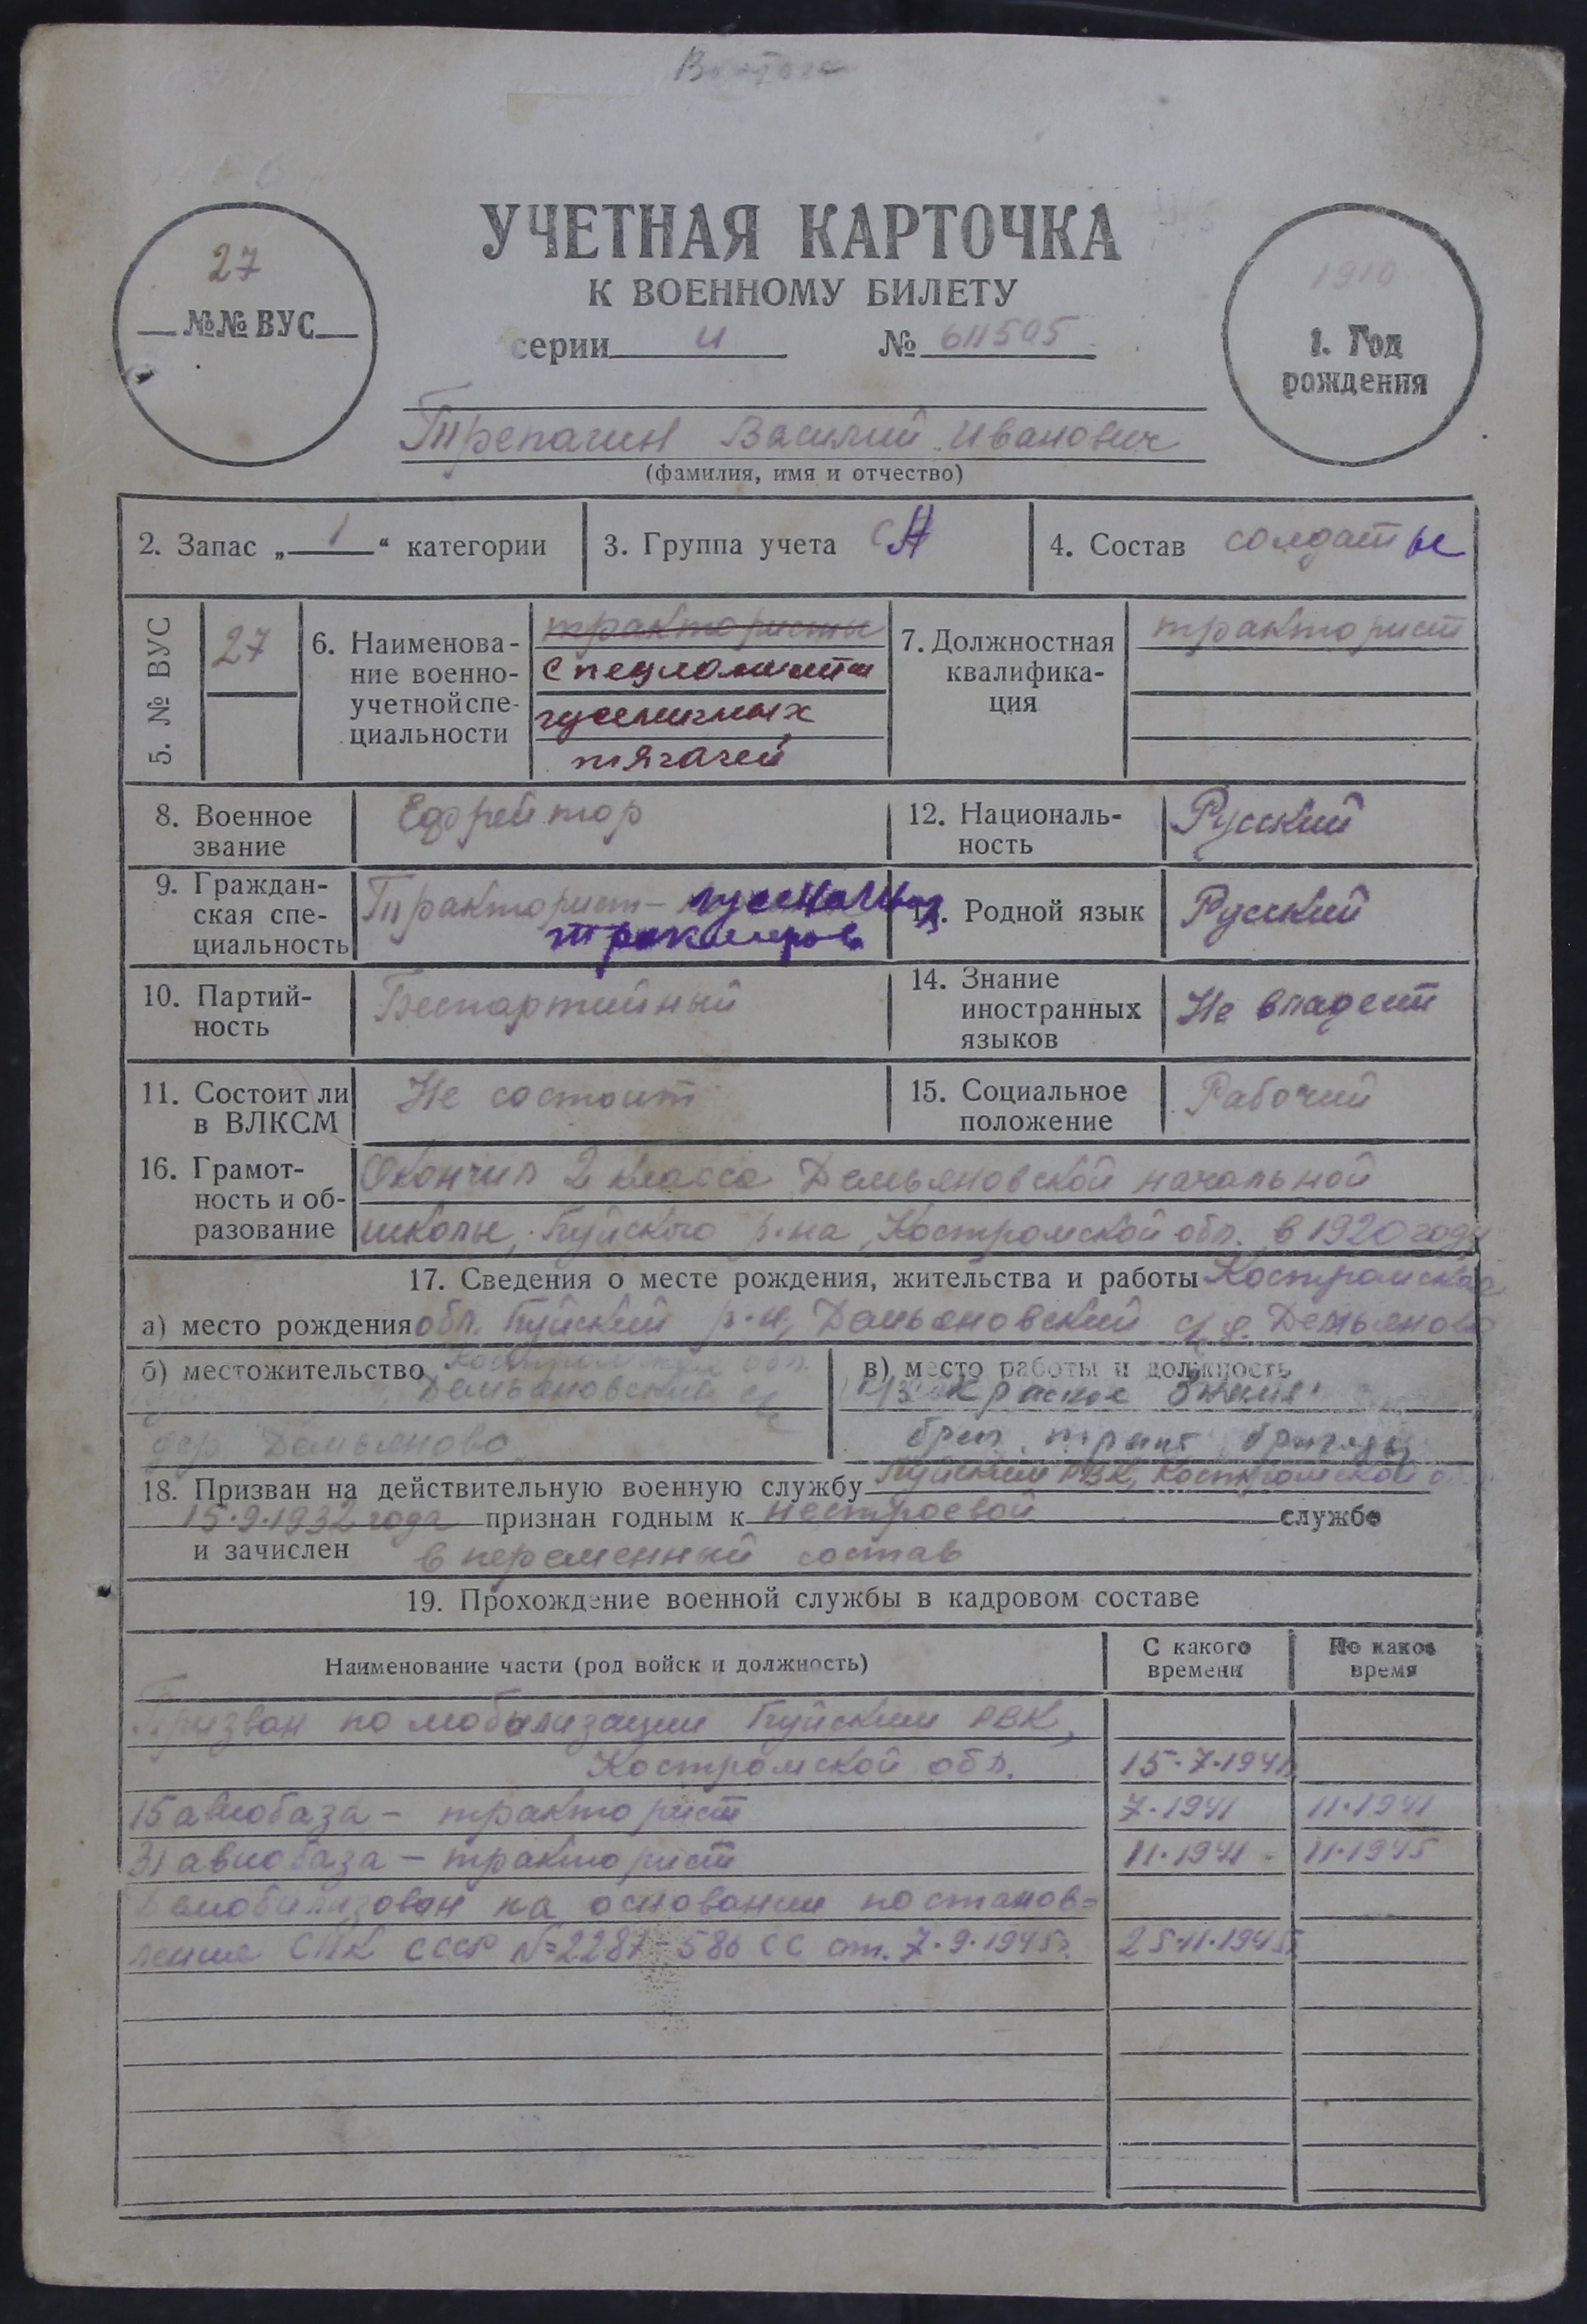 27
№№ ВУС
УЧЕТНАЯ КАРТОЧКА
К ВОЕННОМУ БИЛЕТУ
серии И № 611505
1910
1. Год
рождения
Трепагин Василий Иванович
(фамилия, имя и отчество)
2. Запас „ 1 “ категории
3. Группа учета СА
4. Состав солдаты
5. № ВУС
27
6. Наименова-
ние военно-
учетной спе-
циальности
трактористы
гусеничных
тягачей
7. Должностная
квалифика-
ция
тракторист
8. Военное
звание
Ефрейтор
12. Националь-
ность
Русский
9. Граждан-
ская спе-
циальность
Тракторист- гусеничных
тракторов
13. Родной язык
Русский
10. Партий-
ность
Беспартийный
14. Знание
иностранных
языков
Не владеет
11. Состоит ли
в ВЛКСМ
Не состоит
15. Социальное
положение
Рабочий
16. Грамот-
ность и об-
разование
Окончил 2 класса Демьяновской начальной
школы, Буйского р-на, Костромской обл. в 1920 году
17. Сведения о месте рождения, жительства и работы Костромская
а) место рождения обл. Буйский р-н, Демьяновский с/с д. Демьяново
б) местожительство Костромская обл.
Демьяновский с/с
дер Демьяново
в) место работы и должность
к/з Красное Знамя
тракт. бригады
18. Призван на действительную военную службу Буйским РВК, Костромской обл.
15.9.1932 года признан годным к нестроевой службе
и зачислен в переменный состав
19. Прохождение военной службы в кадровом составе
Наименование части (род войск и должность)
С какого
времени
По какое
время
Призван по мобилизации Буйским РВК,
Костромской обл. 15.7.1941г.
15 авиобаза - тракторист 7.1941 11.1941
31 авиобаза - тракторист 11.1941 11.1945
Демобилизован на основании постанов-
ления СНК СССР №2287-586 СС от. 7.9.1945г. 25.11.1945г.